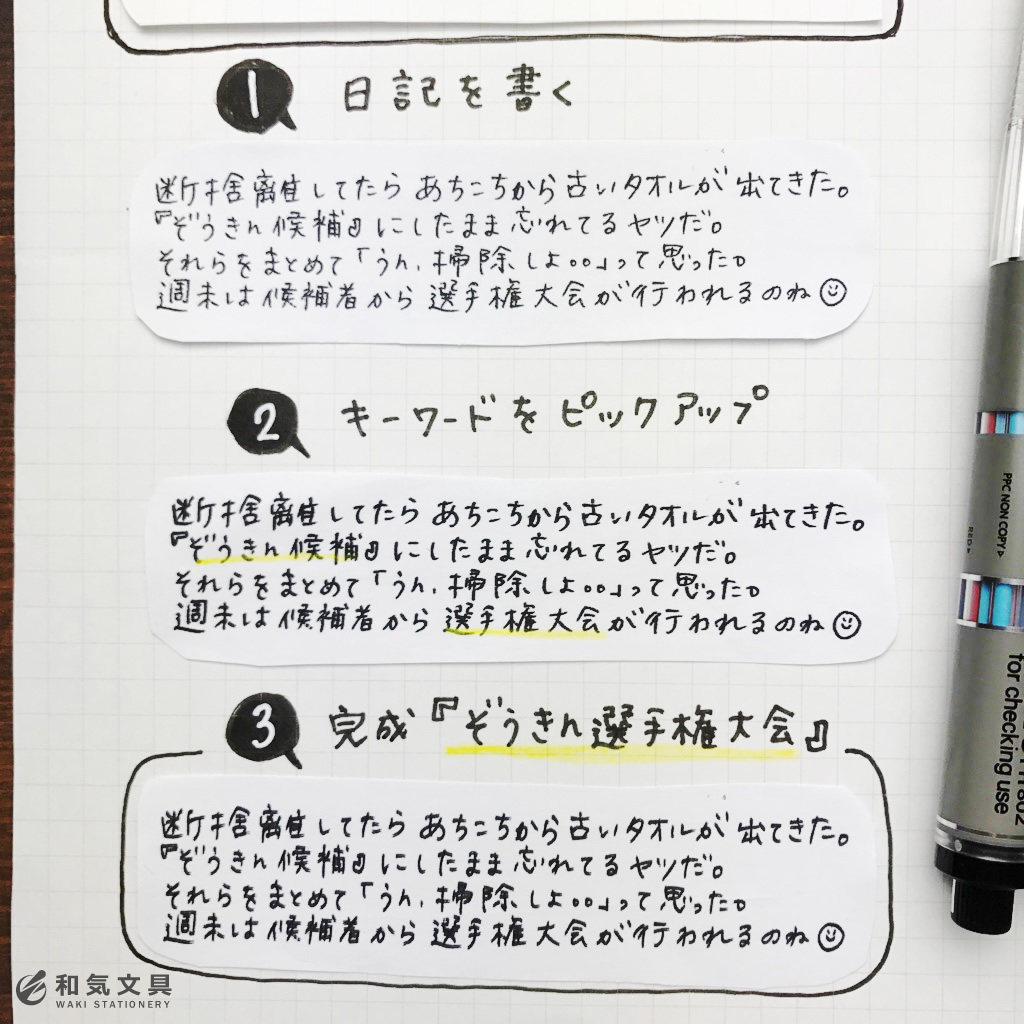 1 日記を書く
断捨離してたらあちこちから古いタオルが出てきた。
『ぞうきん候補』にしたまま忘れてるヤツだ。
それらをまとめて「うん、掃除しよ。。」って思った。
週末は候補者から選手権大会が行われるのね
2 キーワードをピックアップ
断捨離してたらあちこちから古いタオルが出てきた。
『ぞうきん候補』にしたまま忘れてるヤツだ。
それらをまとめて「うん、掃除しよ。。」って思った。
週末は候補者から選手権大会が行われるのね
3 完成『ぞうきん選手権大会』
断捨離してたらあちこちから古いタオルが出てきた。
『ぞうきん候補』にしたまま忘れてるヤツだ。
それらをまとめて「うん、掃除しよ。。」って思った。
週末は候補者から選手権大会が行われるのね
PPC NON COPY
RED
for checking use
和気文具
WAKI STATIONERY